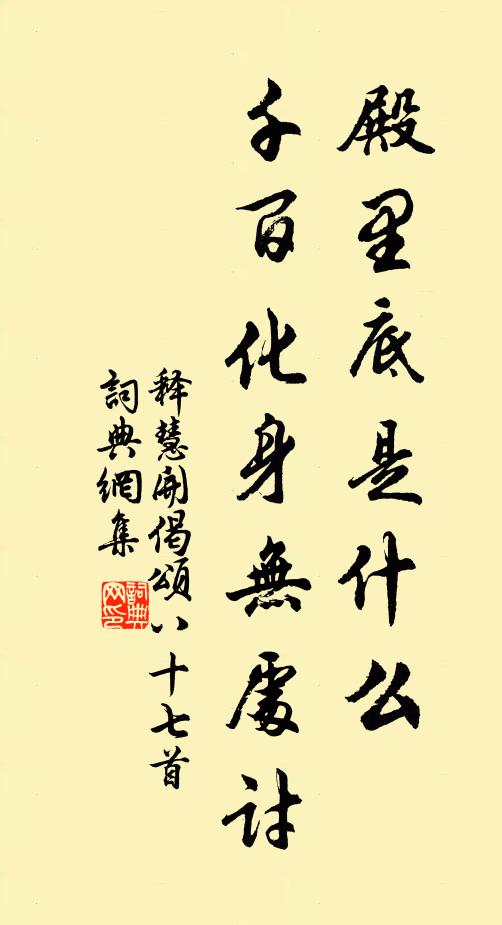 殿里底是什么
千百化身無處討
释慧開偈頌八十七首
詞典網集
詞典
网印